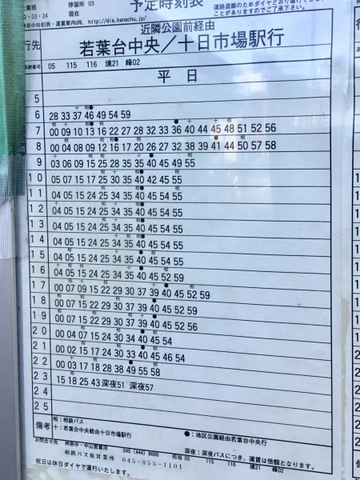 予定時刻表
停留所 03
現在
http://dia.kanachu.jp
近隣公園前経由
若葉台中央/十日市場駅行
05 115 116 境21 峰02
平日
5
6 28 33 37 46 49 54 59
7 00 09 10 13 16 22 27 28 32 33 36 40 44 45 48 51 52 56
8 00 04 08 09 12 16 17 20 26 27 32 38 39 41 44 50 57 58
9 03 06 09 15 25 28 35 35 40 45 49 55
10 05 07 15 17 25 30 35 40 42 45 55
11 04 05 15 24 25 34 35 40 45 54 55
12 04 05 15 24 25 34 35 40 45 54 55
13 04 05 15 24 25 34 35 40 45 54 55
14 04 05 15 24 25 34 35 40 45 54 55
15 04 05 15 24 25 34 35 40 45 54 55
16 04 05 15 24 25 34 35 40 45 52 59
17 00 07 09 15 22 29 30 37 39 40 45 52 59
18 00 07 15 22 29 30 37 39 40 45 52 59
19 00 07 15 22 29 30 37 39 40 45 52 56
20 00 04 07 15 24 30 34 40 45 54
21 00 02 15 17 24 30 33 40 45 46 54
22 00 03 17 18 28 38 49 55 58
23 15 18 25 43 深夜51 深夜57
24
25
備考
相:相鉄バス
十:若葉台中央経由十日市場駅行
●:地区公園経由若葉台中央行
深夜:深夜バスにつき、運賃は倍額となります。
相鉄バス 045-955-1101
祝日は休日ダイヤで運行いたします。